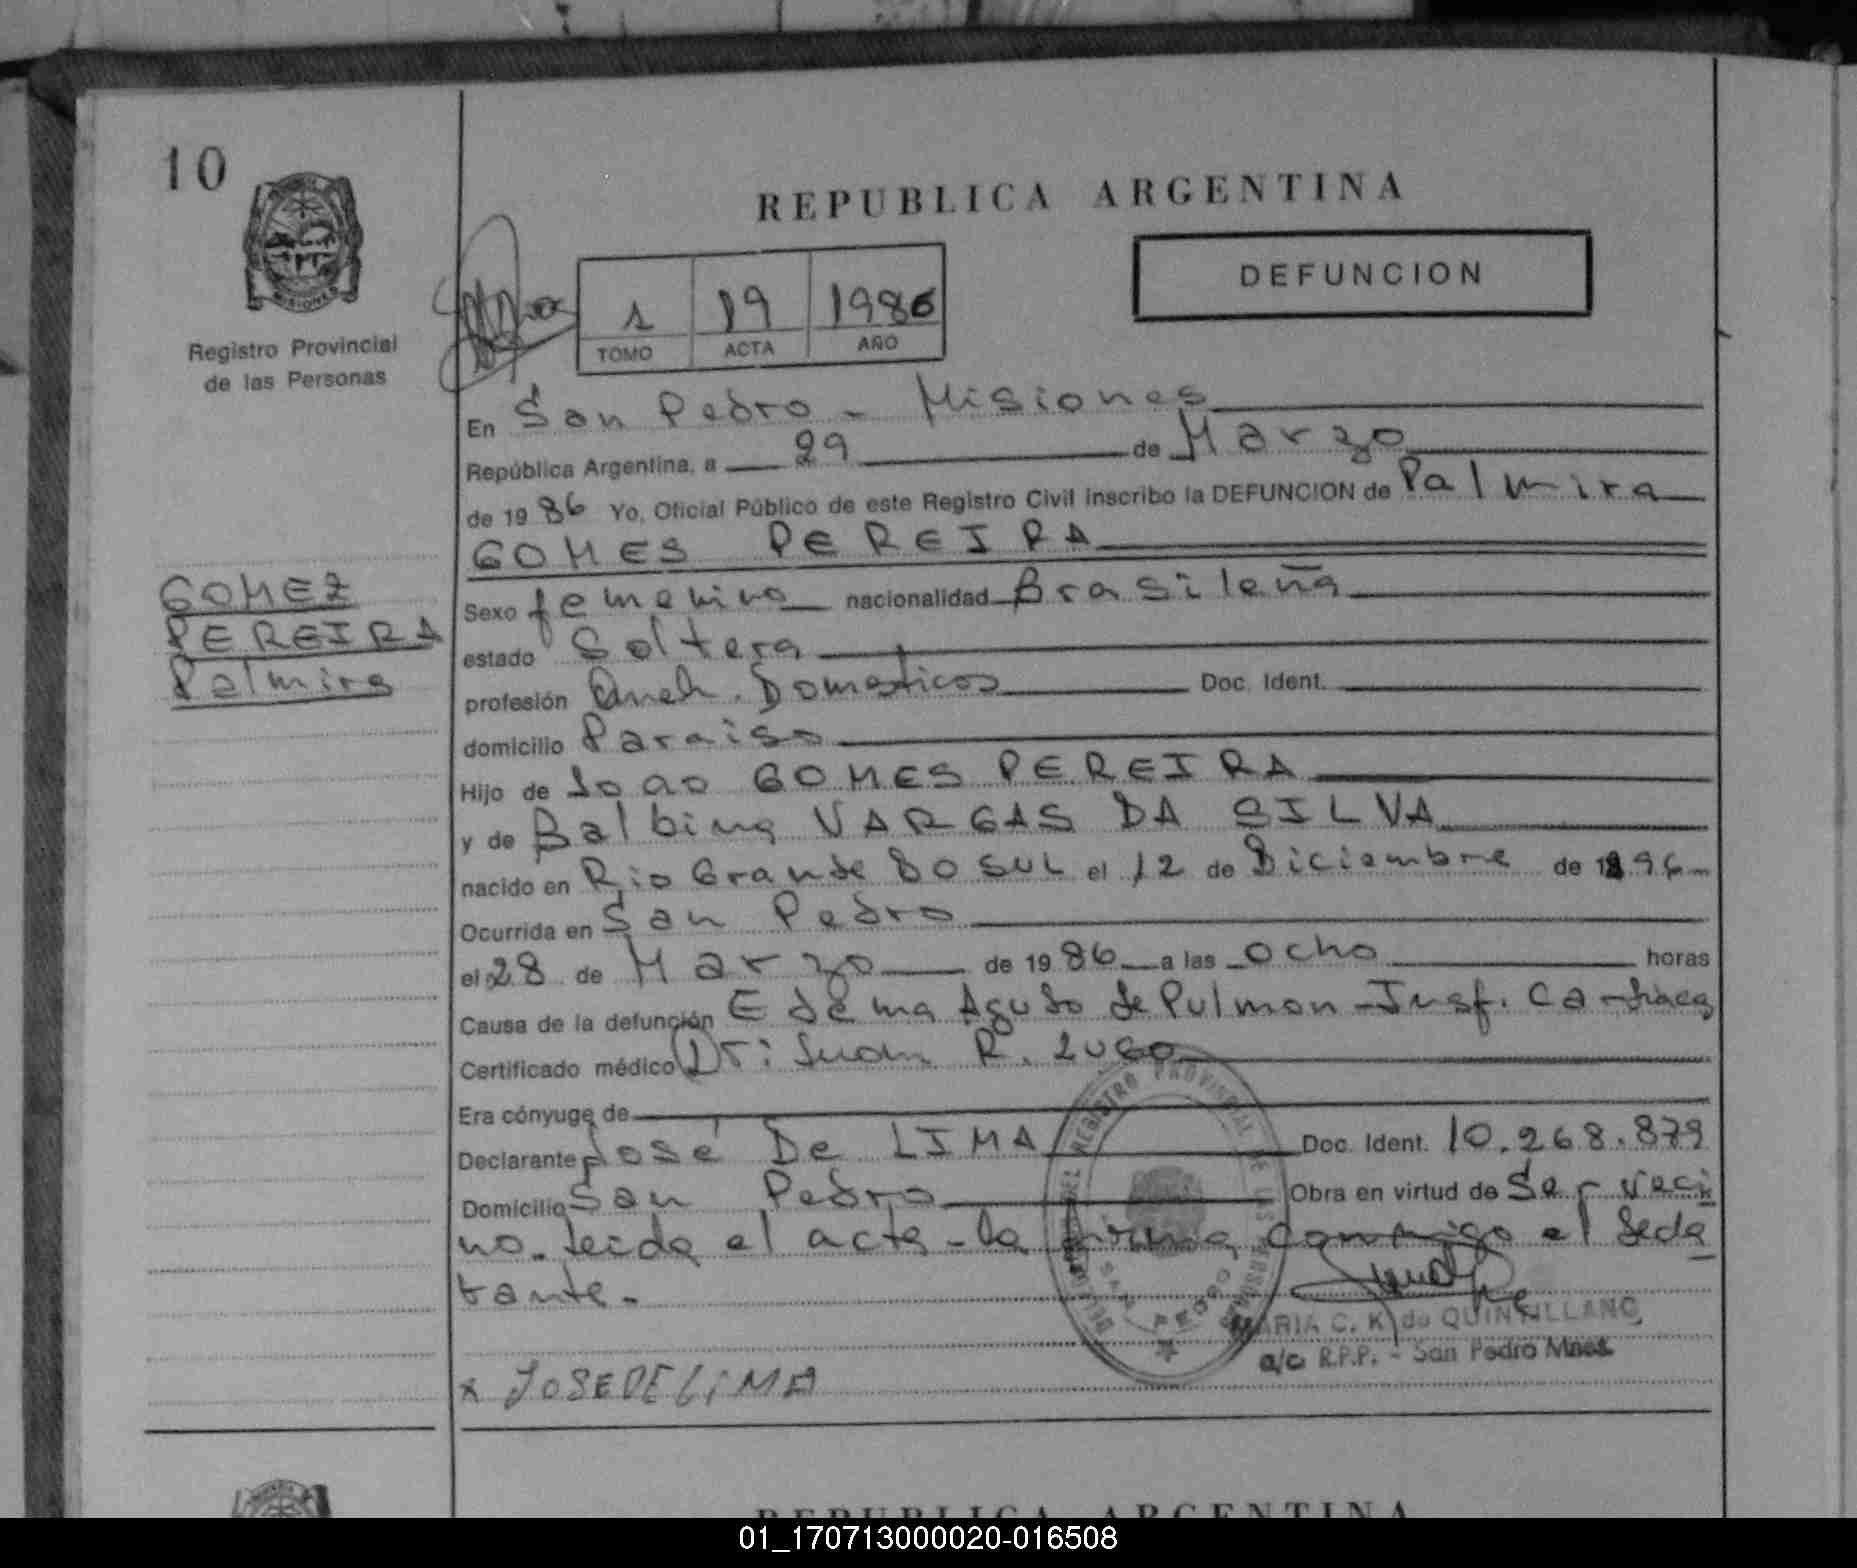 10
REPUBLICA ARGENTINA
DEFUNCION
MISIONES
Registro Provincial
de las Personas
1 19 1986
TOMO ACTA AÑO
En San Pedro - Misiones
República Argentina, a 29 de Marzo
de 1986 Yo, Oficial Público de este Registro Civil inscribo la DEFUNCION de Palmira
GOMES PEREIRA
GOMEZ
PEREIRA
Palmira
Sexo femenino nacionalidad Brasileña
estado Soltera
profesión Queh. Domesticos Doc. Ident.
domicilio Paraiso
Hijo de Joao GOMES PEREIRA
y de Balbina VARGAS DA SILVA
nacido en Rio Grande DO SUL el 12 de Diciembre de 1896
Ocurrida en San Pedro
el 28 de Marzo de 1986 a las ocho horas
Causa de la defunción Edema Agudo de Pulmon - Insf. Cardiaca
Certificado médico Dr: Juan R. Lugo
Era cónyuge de
Declarante José De LIMA Doc. Ident. 10.268.879
Domicilio San Pedro Obra en virtud de Ser veci
no. Leida el acta - la firma conmigo el decla
rante.
DELEGACION DEL REGISTRO PROVINCIAL DE LAS PERSONAS
SAN PEDRO
MARIA C. K. de QUINTILLANO
a/c R.P.P. - San Pedro Mnes.
x JOSE DE LIMA
REPUBLICA ARGENTINA
01_170713000020-016508